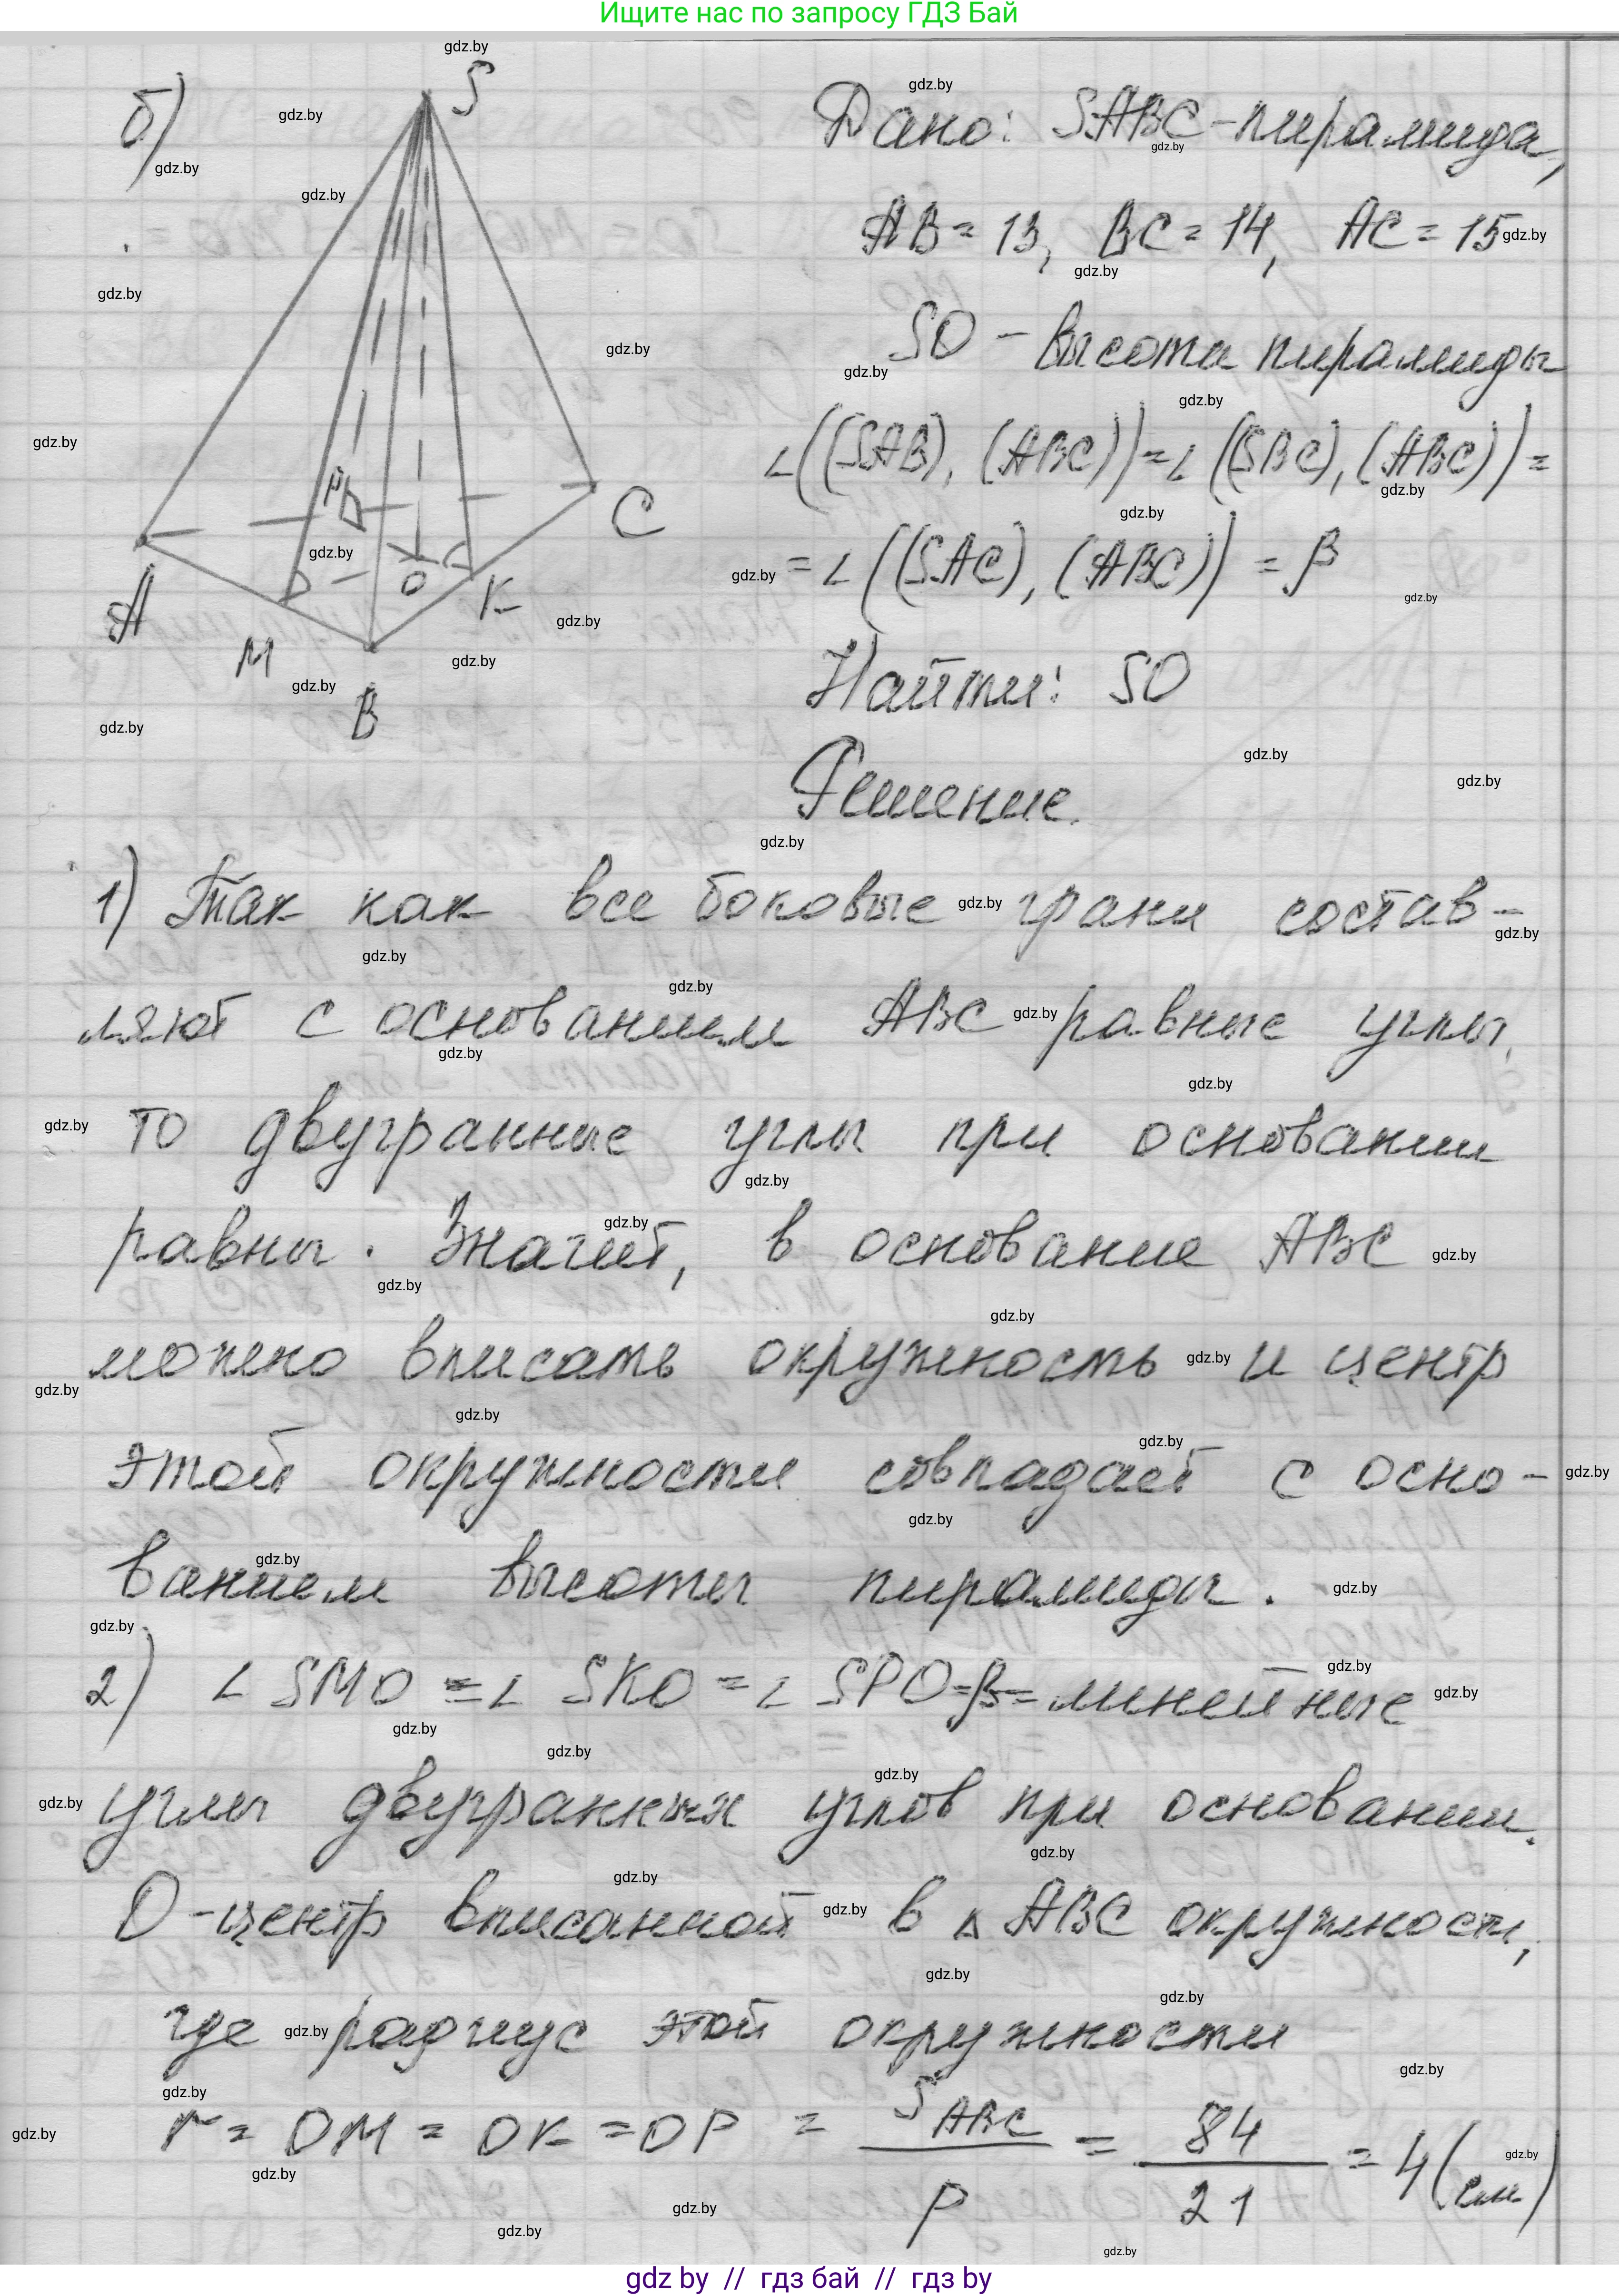 Ищите нас по запросу ГДЗ Бай
б)
S
A
M
B
P
O
K
C
Дано: SABC - пирамида,
AB = 13, BC = 14, AC = 15
SO - высота пирамиды
∠((SAB), (ABC)) = ∠((SBC), (ABC)) =
= ∠((SAC), (ABC)) = β
Найти: SO
Решение.
1) Так как все боковые грани состав-
ляют с основанием ABC равные углы,
то двугранные углы при основании
равны. Значит, в основание ABC
можно вписать окружность и центр
этой окружности совпадает с осно-
ванием высоты пирамиды.
2) ∠ SMO = ∠ SKO = ∠ SPO = β = линейные
углы двугранных углов при основании.
O - центр вписанной в △ ABC окружности,
где радиус этой окружности
r = OM = OK = OP = S ABC / p = 84 / 21 = 4 (см)
gdz by // гдз бай // гдз by